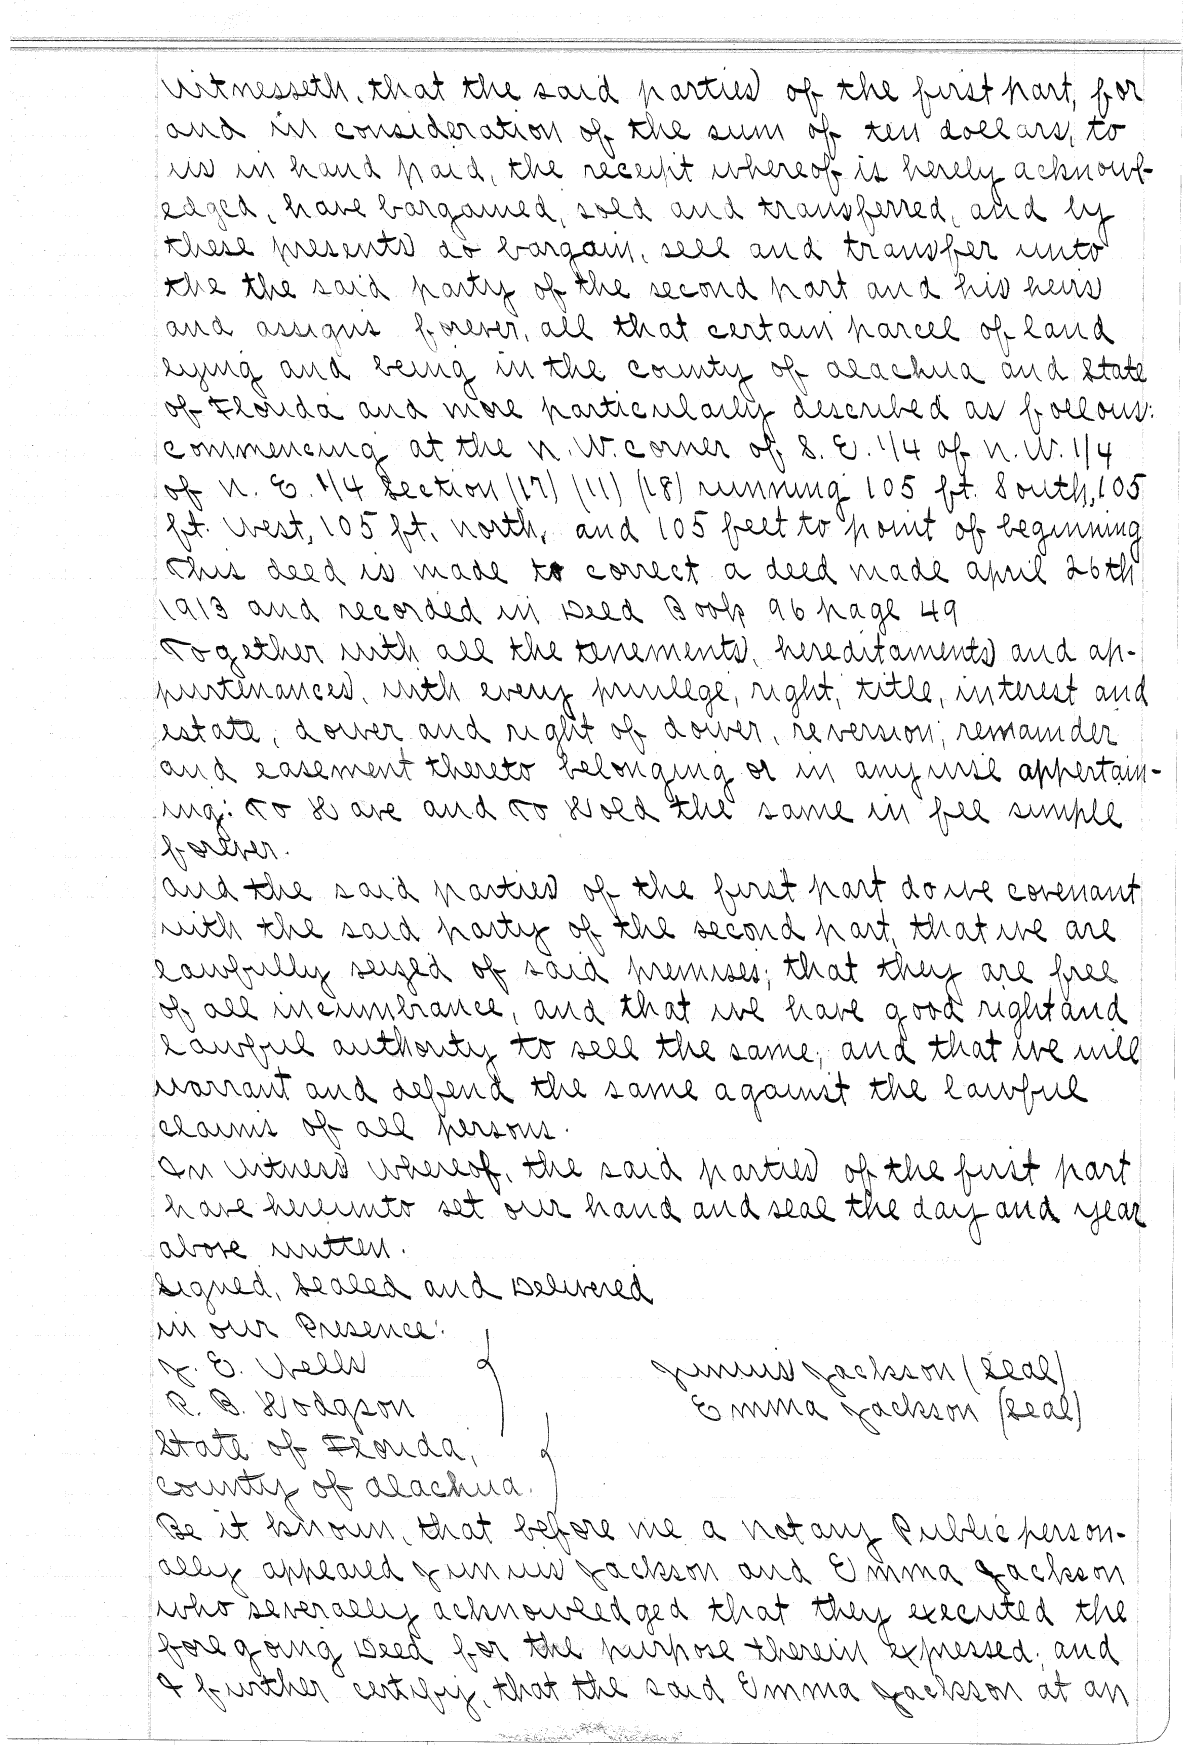 Witnesseth, that the said parties of the first part, for
and in consideration of the sum of ten dollars, to
us in hand paid, the receipt whereof is hereby acknowl-
edged, have bargained, sold and transferred, and by
these presents do bargain, sell and transfer unto
the the said party of the second part and his heirs
and assigns forever, all that certain parcel of land
lying and being in the county of Alachua and State
of Florida and more particularly described as follows:
Commencing at the N.W. corner of S. E. 1/4 of N. W. 1/4
of N. E. 1/4 Section (17) (11) (18) running 105 ft. South, 105
ft. West, 105 ft. North, and 105 feet to point of beginning
This deed is made to correct a deed made April 26th
1913 and recorded in Deed Book 96 page 49
Together with all the tenements, hereditaments and ap-
purtenances, with every privilege, right, title, interest and
estate, dower and right of dower, reversion, remainder
and easement thereto belonging or in anywise appertain-
ing: To Have and To Hold the same in fee simple
forever.
And the said parties of the first part do we covenant
with the said party of the second part, that we are
lawfully seized of said premises; that they are free
of all incumbrance, and that we have good right and
lawful authority to sell the same; and that we will
warrant and defend the same against the lawful
claims of all persons.
In Witness Whereof, the said parties of the first part
have hereunto set our hand and seal the day and year
above written.
Signed, Sealed and Delivered
in our Presence:
J. E. Wells Junius Jackson (Seal)
R. B. Hodgson Emma Jackson (Seal)
State of Florida,
County of Alachua.
Be it known, that before me a Notary Public person-
ally appeared Junius Jackson and Emma Jackson
who severally acknowledged that they executed the
foregoing Deed for the purpose therein expressed; and
I further certify, that the said Emma Jackson at an